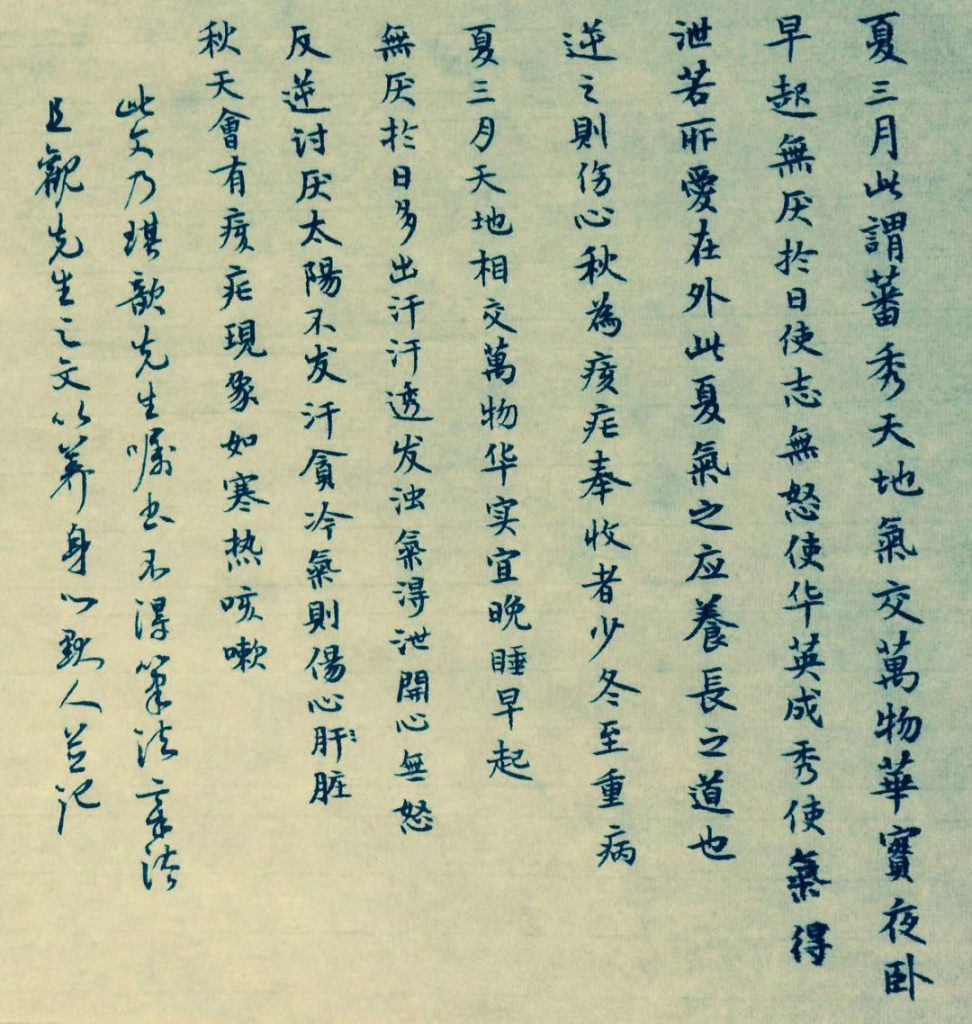 夏三月此謂蕃秀天地氣交萬物華實夜卧
早起無厌於日使志無怒使华英成秀使氣得
泄若所愛在外此夏氣之应養長之道也
逆之則伤心秋為痎疟奉收者少冬至重病
夏三月天地相交萬物华实宜晚睡早起
無厌於日多出汗汗透发浊氣得泄開心無怒
反逆讨厌太陽不发汗貪冷氣則傷心肝脏
秋天會有痎疟現象如寒热咳嗽
此文乃琪歆先生嘱书不得筆法章法
且觀先生之文以养身心野人益记